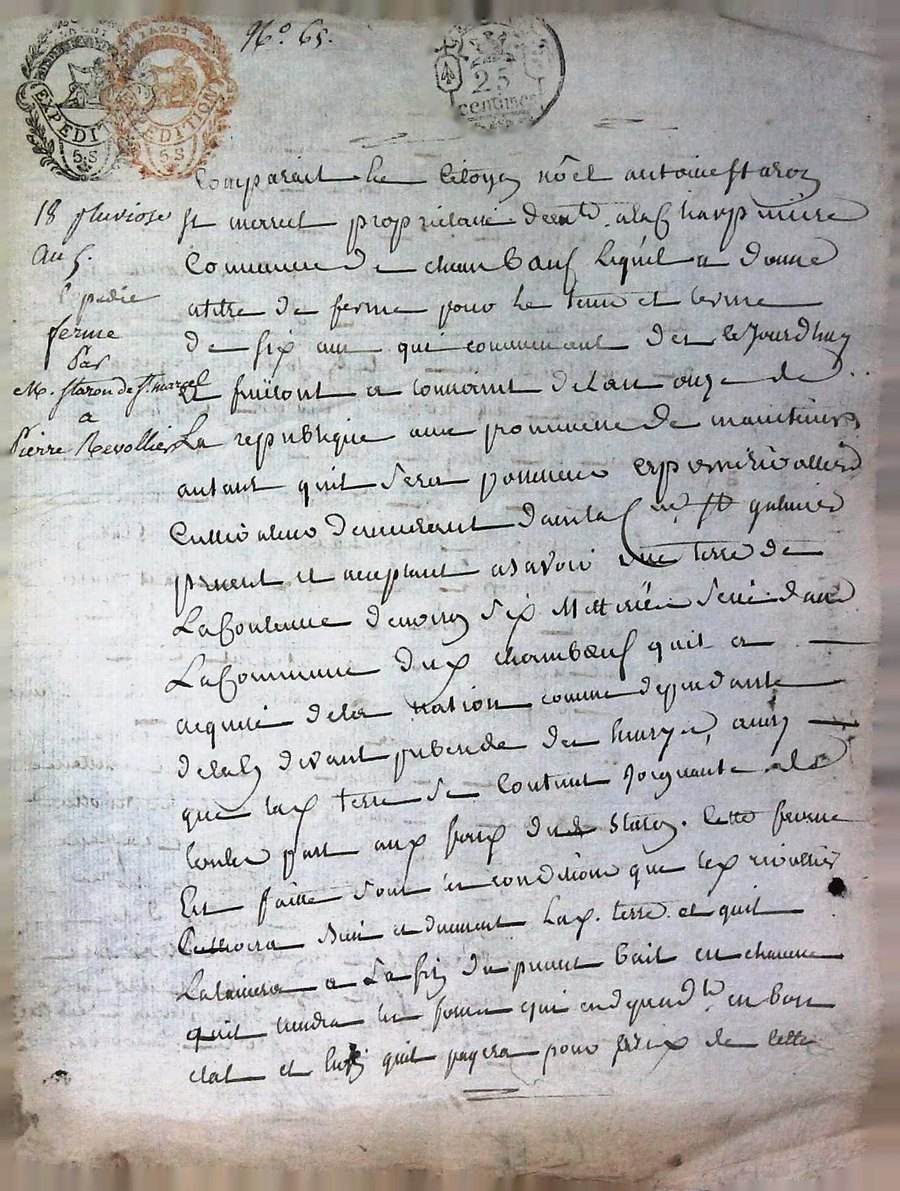 N°. 65.
LA LOI
EXPEDITION
5 S
25
centimes
18 pluviose
an 5.
Expedie
ferme
Par
M. Staron de St. marcel
a
Pierre Revollier
Comparait le Citoyen nöel antoine Staron
St marcel propriétaire demt. a la Charpinière
Commune de chambœuf lequel a donné
a titre de ferme pour le tems et terme
de six ans qui commencent des ce Jourdhuy
et finiront a
La republique avec promesse de maintenir
autant quil sera pierre revollier
Cultivateur demeurant galmier
present et acceptant a savoir une terre de
La Contenue denviron six Metterées située dans
La Commune dud chambœuf quil a
acquise de la nation comme dependante
de la cy devant prebende de ainsy
que lad terre se Contient Joignante de
toute part aux fonds dud Staron. Cette ferme
Est faitte sous les conditions que led revollier
Cultivera bien et duement Lad. terre et quil
La laissera a La fin du present bail en chaume
quil tiendra les fossés qui en dependt. en bon
etat et quil payera pour prix de cette